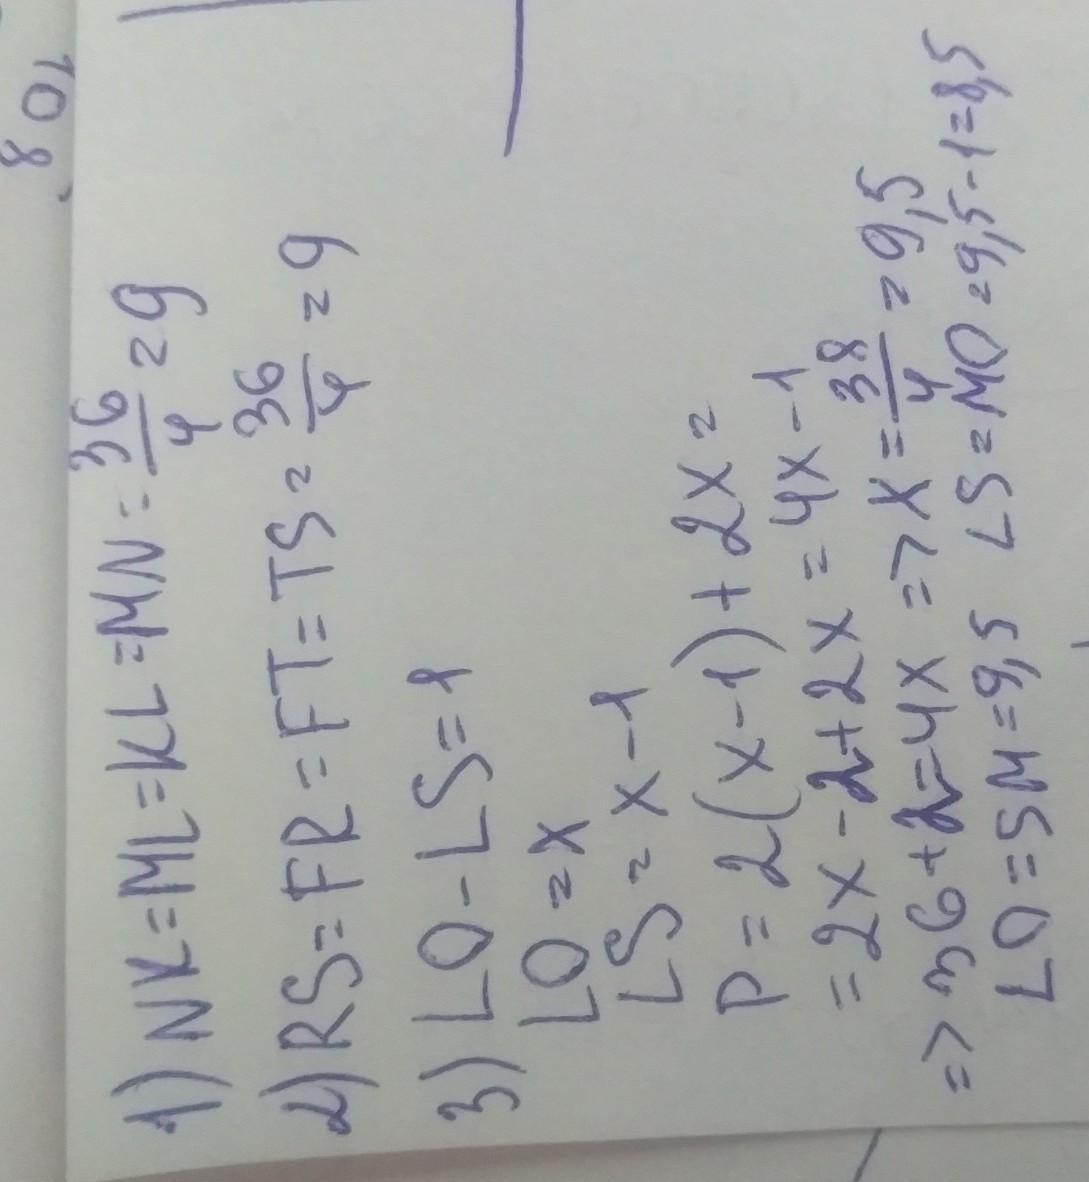 8 01
1) NK=ML=KL=MN=36/4=9
2) RS=FR=FT=TS=36/4=9
3) LO-LS=1
LO=x
LS=x-1
P=2(x-1)+2x=
=2x-2+2x=4x-1
=>36+2=4x =>x=38/4=9,5
LO=SM=9,5 LS=MO=9,5-1=8,5